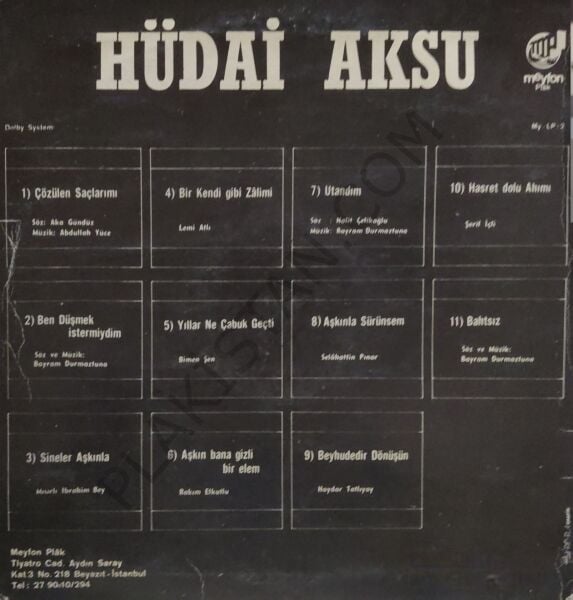 HÜDAİ AKSU
meyfon
Plâk
Dolby System
My - LP - 2
1) Çözülen Saçlarımı
Söz: Aka Gündüz
Müzik: Abdullah Yüce
2) Ben Düşmek
istermiydim
Söz ve Müzik:
Bayram Durmaztuna
3) Sineler Aşkınla
Mısırlı İbrahim Bey
4) Bir Kendi gibi Zâlimi
Lemi Atlı
5) Yıllar Ne Çabuk Geçti
Bimen Şen
6) Aşkın bana gizli
bir elem
Rakım Elkutlu
7) Utandım
Söz : Halit Çelikoğlu
Müzik: Bayram Durmaztuna
8) Aşkınla Sürünsem
Selâhattin Pınar
9) Beyhudedir Dönüşün
Haydar Tatlıyay
10) Hasret dolu Ahımı
Şerif İçli
11) Bahtsız
Söz ve Müzik:
Bayram Durmaztuna
Meyfon Plâk
Tiyatro Cad. Aydın Saray
Kat 3 No. 218 Beyazıt-İstanbul
Tel: 27 90 10/294
PLAKISTAN.COM